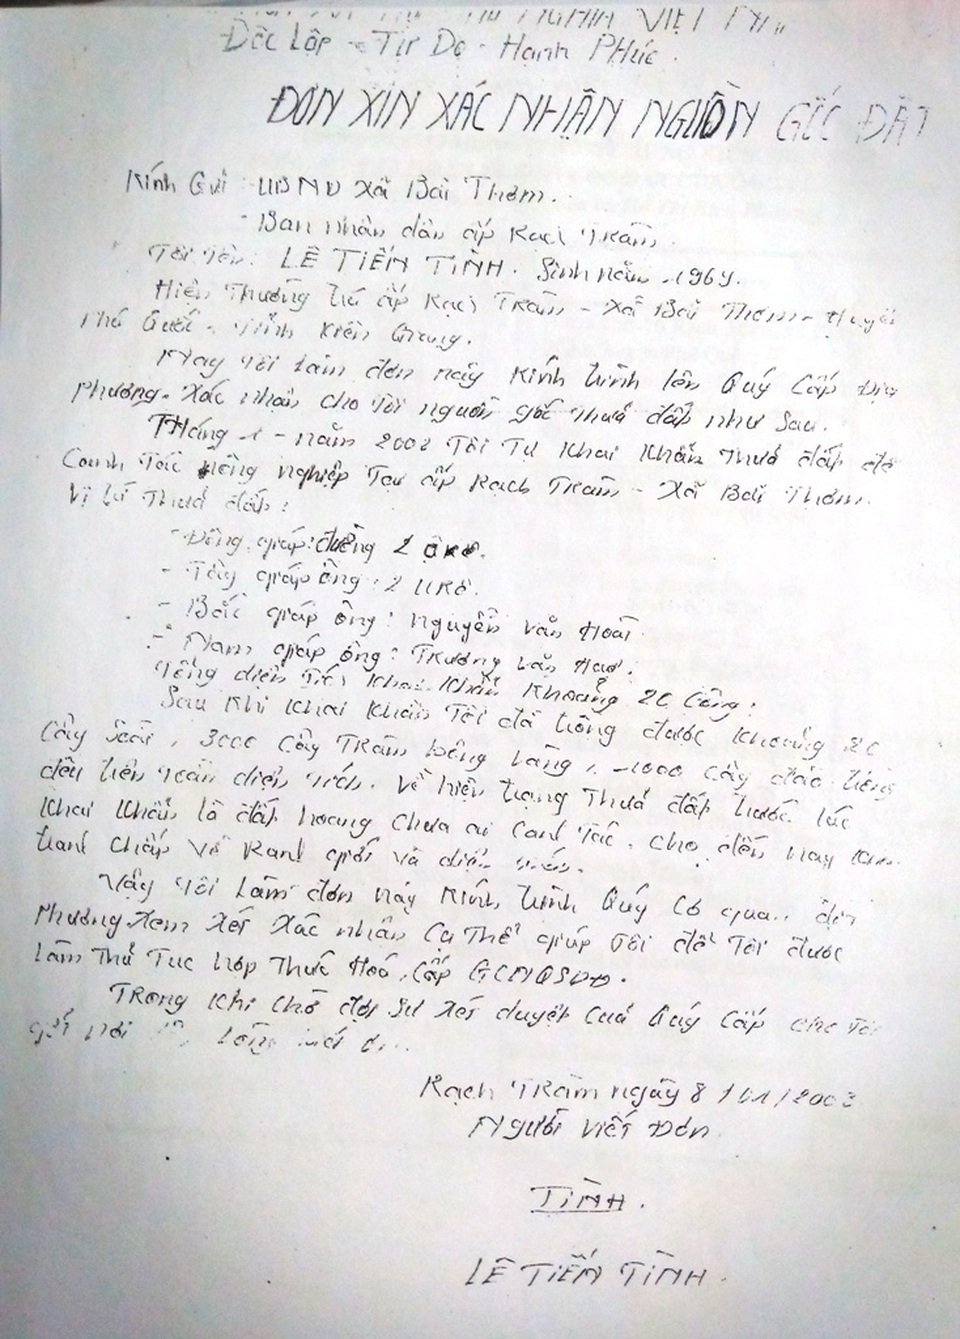 NGHĨA VIỆT
Độc Lập - Tự Do - Hạnh PHúc.
ĐƠN XIN XÁC NHẬN NGUỒN GỐC ĐẤT
Kính Gửi: UBND Xã Bãi Thơm.
- Ban nhân dân ấp Rạch Tràm.
Tôi Tên: LÊ TIẾN TÌNH. Sinh năm 1969.
Hiện Thường trú ấp Rạch Tràm - Xã Bãi Thơm - Huyện
Phú Quốc - Tỉnh Kiên Giang.
Nay Tôi Làm đơn này Kính trình lên Quý Cấp Địa
Phương. Xác nhận cho Tôi nguồn gốc thửa đất như Sau.
THáng 1 - năm 2002 Tôi Tự Khai Khẩn Thửa đất để
Canh Tác nông nghiệp Tại ấp Rạch Tràm - Xã Bãi Thơm.
Vị trí Thửa đất:
- Đông giáp: đường
- Tây giáp ông:
- Bắc giáp ông: Nguyễn Văn Hoài.
- Nam giáp ông: Trương Văn
Tổng diện Tích Khai Khẩn Khoảng 20 Công.
Sau Khi Khai Khẩn Tôi đã trồng được Khoảng 20
Cây Xoài, 3000 Cây Tràm bông vàng, 1000 Cây đào trồng
đều trên toàn diện tích. Về hiện trạng Thửa đất trước lúc
Khai Khẩn là đất hoang chưa ai Canh Tác. Cho đến nay
tranh chấp về Ranh giới và diện tích.
Vậy Tôi Làm đơn này Kính trình Quý Cơ quan địa
Phương Xem Xét Xác nhận Cụ Thể giúp Tôi để Tôi được
Làm Thủ Tục hợp Thức Hoá, Cấp GCNQSDĐ.
Trong Khi chờ đợi Sự Xét duyệt Của Quý Cấp cho Tôi
gửi nơi lòng
Rạch Tràm ngày 8/01/2003
Người Viết Đơn
TÌNH.
LÊ TIẾN TÌNH.